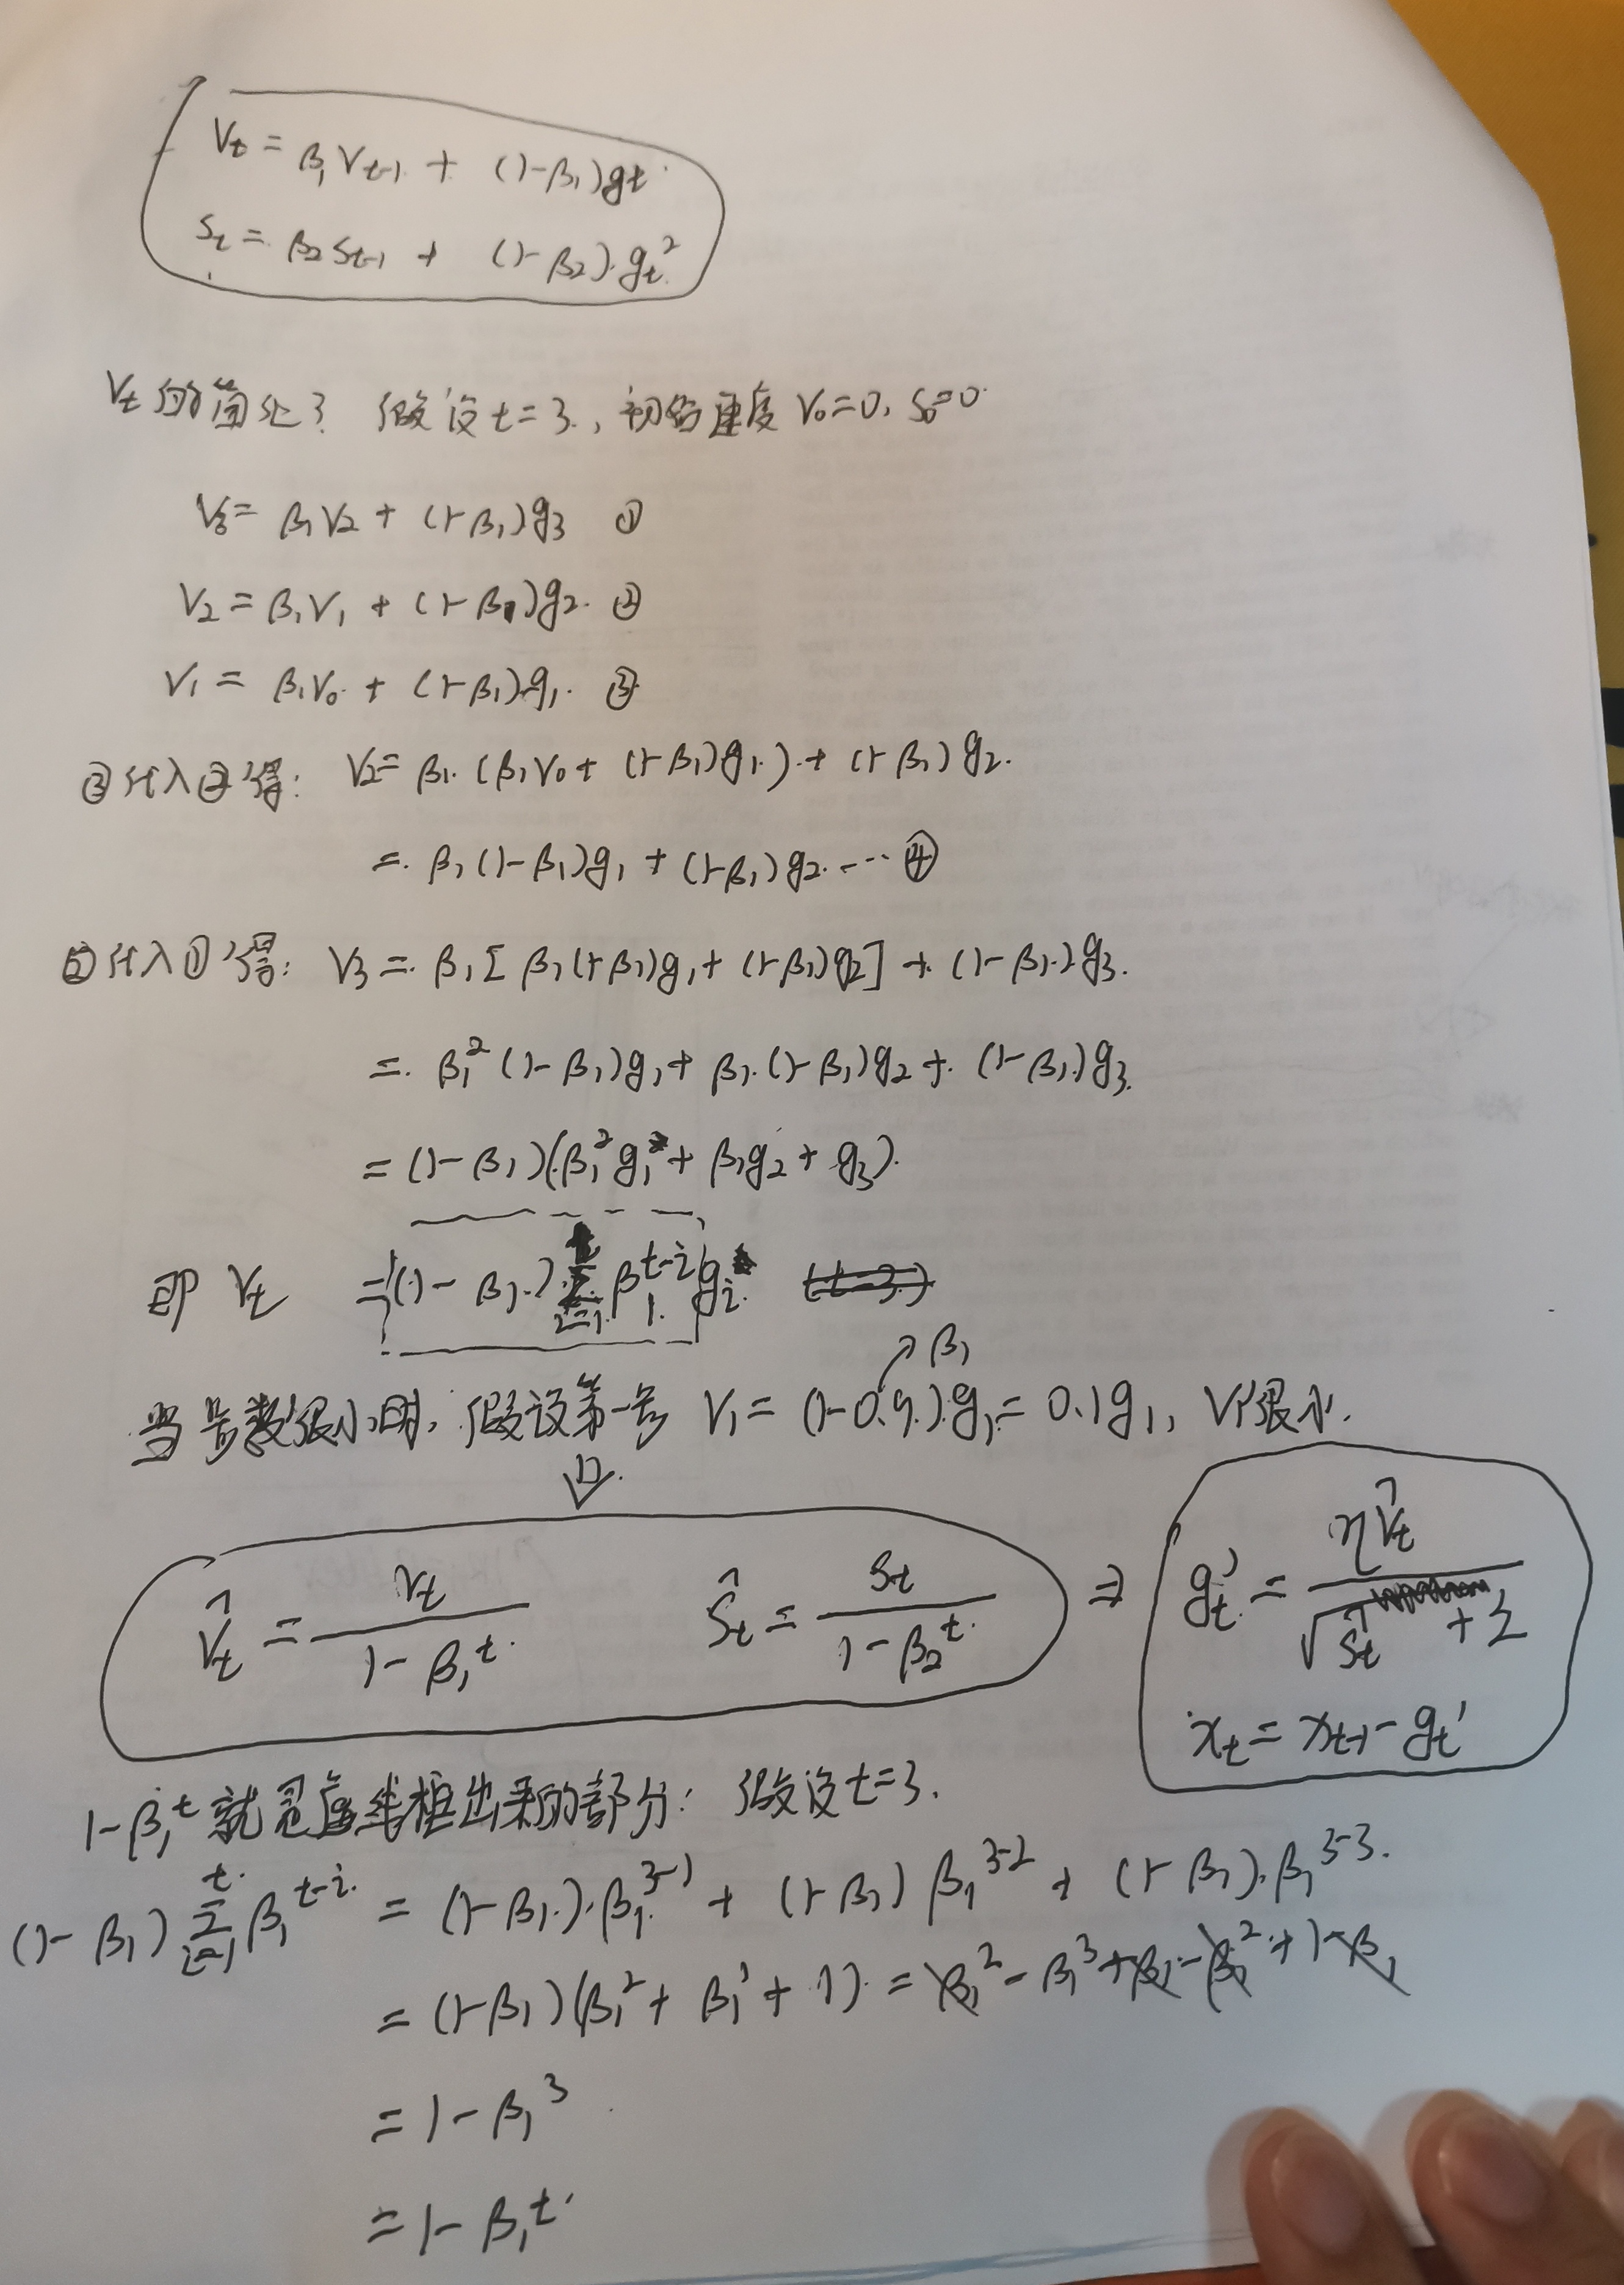 Vt = β₁Vt-1 + (1-β₁)gt
St = β₂St-1 + (1-β₂)·gt²
Vt 的 假设 t=3, 初始速度 V₀=0, S₀=0
V₃ = β₁V₂ + (1-β₁)g₃ ①
V₂ = β₁V₁ + (1-β₁)g₂ ②
V₁ = β₁V₀ + (1-β₁)g₁ ③
③代入②得: V₂ = β₁·(β₁V₀ + (1-β₁)g₁) + (1-β₁)g₂
= β₁(1-β₁)g₁ + (1-β₁)g₂ ···④
代入①得: V₃ = β₁[β₁(1-β₁)g₁ + (1-β₁)g₂] + (1-β₁)g₃
= β₁²(1-β₁)g₁ + β₁·(1-β₁)g₂ + (1-β₁)g₃
= (1-β₁)(β₁²g₁ + β₁g₂ + g₃)
即 Vt = (1-β₁)Σ i=1 β₁^(t-i) gi
β₁
当步数很小时, 假设第一步 V₁ = (1-0.9)g₁ = 0.1g₁, V₁很小.
V̂t = Vt / (1-β₁^t) Ŝt = St / (1-β₂^t) ⇒ gt' = ηV̂t / (√Ŝt + ε)
xt = xt-1 - gt'
1-β₁^t 就是虚线框出来的部分: 假设t=3.
(1-β₁) Σ i=1 t β₁^(t-i) = (1-β₁)·β₁^(3-1) + (1-β₁)β₁^(3-2) + (1-β₁)·β₁^(3-3)
= (1-β₁)(β₁² + β₁¹ + 1) = β₁² - β₁³ + β₁ - β₁² + 1 - β₁
= 1-β₁³
= 1-β₁^t